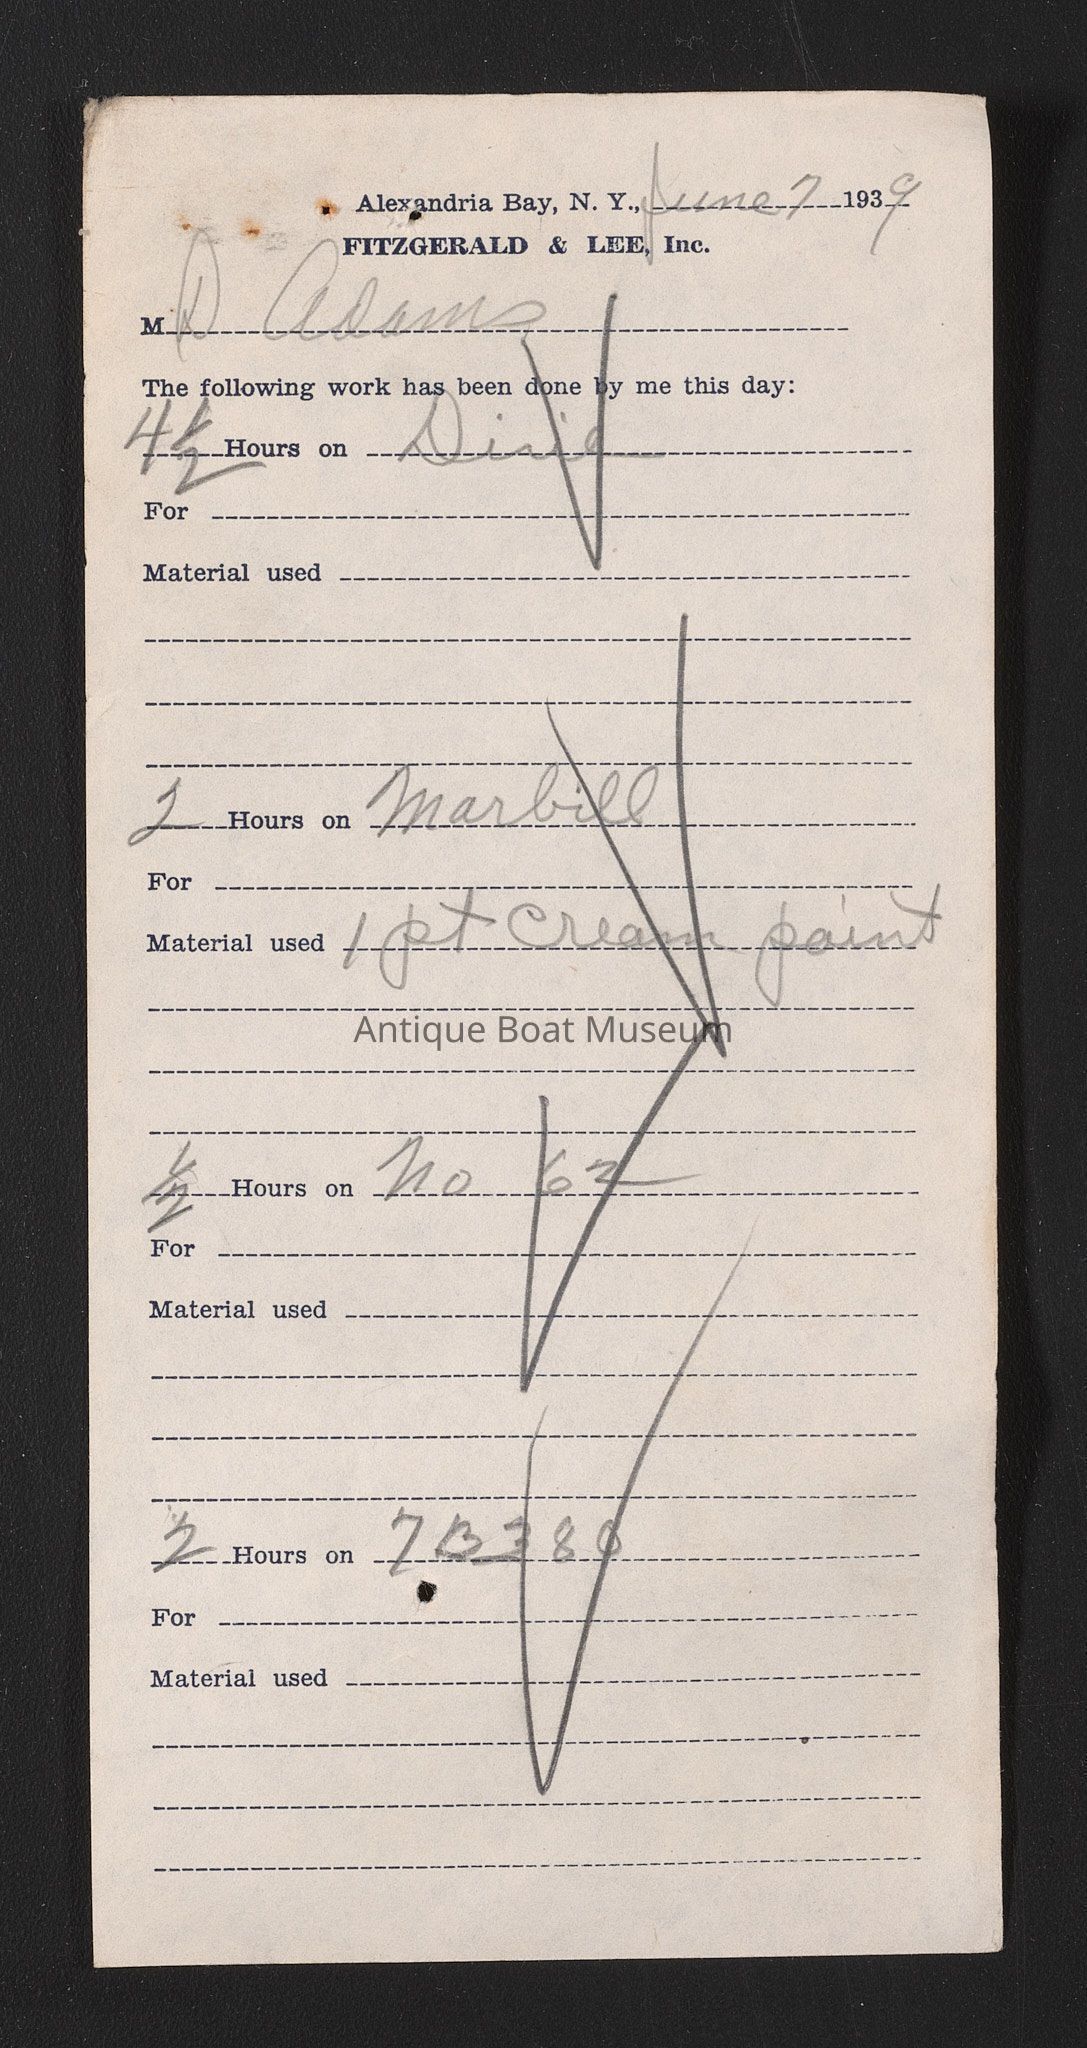 Alexandria Bay, N. Y., June 7 1939
FITZGERALD & LEE, Inc.
M D Adams
The following work has been done by me this day:
4 1/2 Hours on Dixie
For
Material used
2 Hours on Marbill
For
Material used 1 pt Cream paint
Antique Boat Museum
1/2 Hours on No 62
For
Material used
2 Hours on 7B380
For
Material used